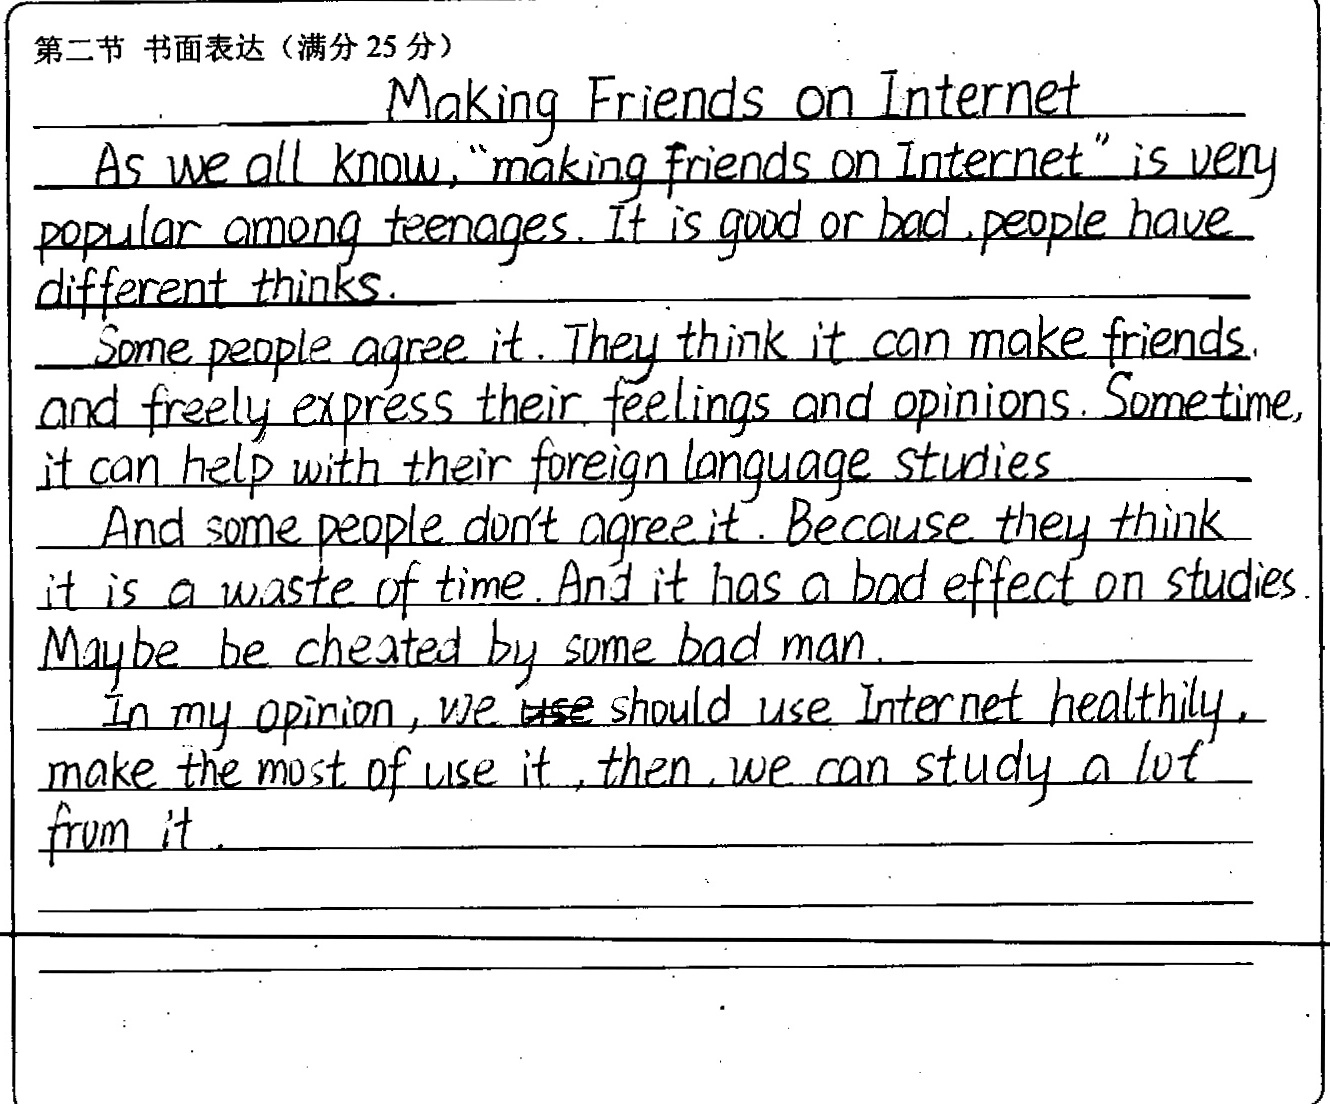 第二节 书面表达（满分25分）
Making Friends on Internet
As we all know, "making friends on Internet" is very
popular among teenages. It is good or bad, people have
different thinks.
Some people agree it. They think it can make friends.
and freely express their feelings and opinions. Sometime,
it can help with their foreign language studies
And some people don't agree it. Because they think
it is a waste of time. And it has a bad effect on studies.
Maybe be cheated by some bad man.
In my opinion, we use should use Internet healthily,
make the most of use it, then, we can study a lot
from it.